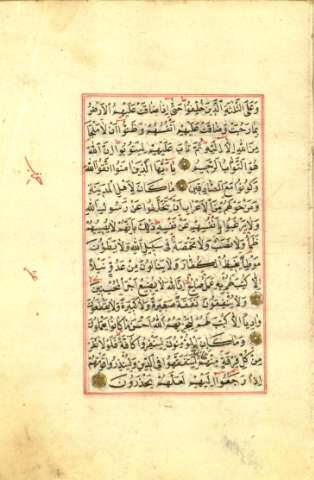 وعلى الثلثة الذين خلفوا حتى اذا ضاقت عليهم الارض
بما رحبت وضاقت عليهم انفسهم وظنوا ان لا ملجا
من الله الا اليه ثم تاب عليهم ليتوبوا ان الله
هو التواب الرحيم يا ايها الذين امنوا اتقوا الله
وكونوا مع الصادقين ما كان لاهل المدينة
ومن حولهم من الاعراب ان يتخلفوا عن رسول الله
ولا يرغبوا بانفسهم عن نفسه ذلك بانهم لا يصيبهم
ظما ولا نصب ولا مخمصة في سبيل الله ولا يطؤن
موطئا يغيظ الكفار ولا ينالون من عدو نيلا
الا كتب لهم به عمل صالح ان الله لا يضيع اجر المحسنين
ولا ينفقون نفقة صغيرة ولا كبيرة ولا يقطعون
واديا الا كتب لهم ليجزيهم الله احسن ما كانوا يعملون
وما كان المؤمنون لينفروا كافة فلولا نفر
من كل فرقة منهم طائفة ليتفقهوا في الدين ولينذروا قومهم
اذا رجعوا اليهم لعلهم يحذرون